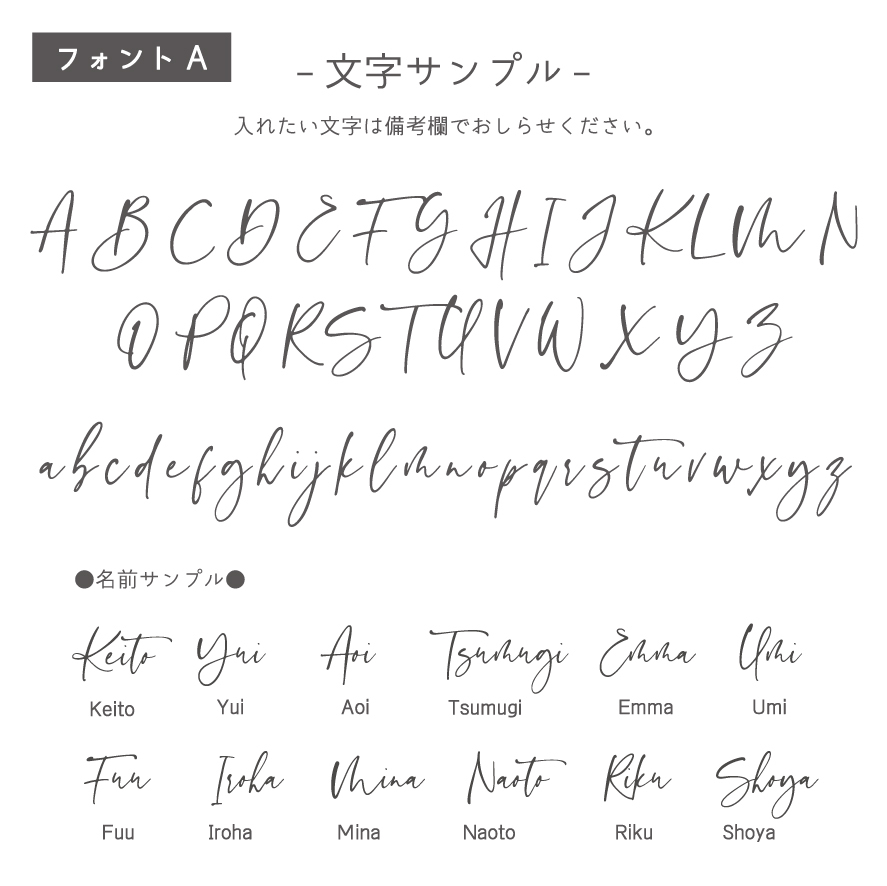 フォント A
– 文字サンプル –
入れたい文字は備考欄でおしらせください。
A B C D E F G H I J K L M N
O P Q R S T U V W X Y Z
a b c d e f g h i j k l m n o p q r s t u v w x y z
●名前サンプル●
Keito Yui Aoi Tsumugi Emma Umi
Keito Yui Aoi Tsumugi Emma Umi
Fuu Iroha Mina Naoto Riku Shoya
Fuu Iroha Mina Naoto Riku Shoya